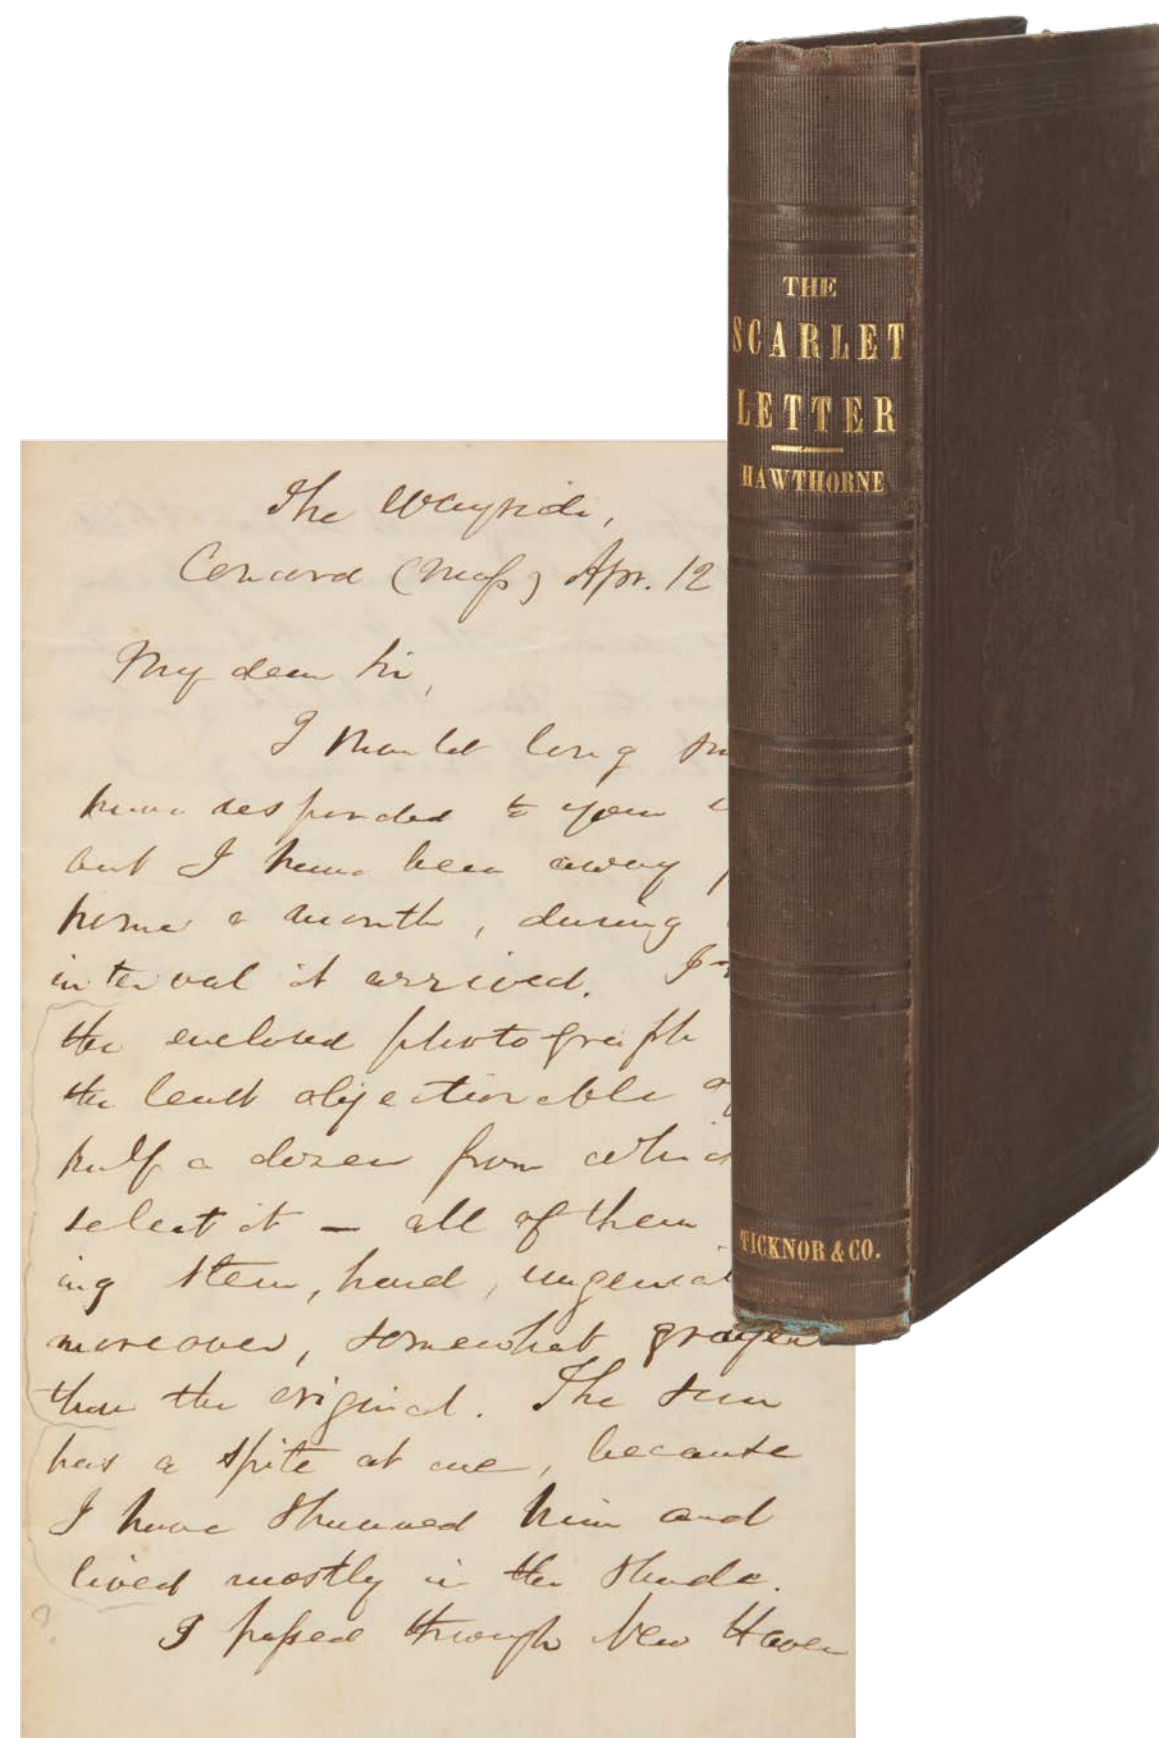 THE
SCARLET
LETTER
HAWTHORNE
TICKNOR & CO.
The Wayside,
Concord (Mass) Apr. 12
My dear Sir,
I should long
have responded to your
but I have been away
home a month, during
interval it arrived.
the enclosed photograph
the least objectionable
half a dozen from
select it — all of them
ing stern, hard, ungenial
moreover, somewhat grayer
than the original. The sun
has a spite at me, because
I have shunned him and
lived mostly in the shade.
I passed through New Haven